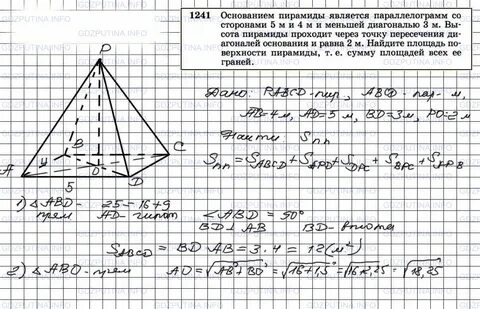 1241 Основанием пирамиды является параллелограмм со
сторонами 5 м и 4 м и меньшей диагональю 3 м. Вы-
сота пирамиды проходит через точку пересечения ди-
агоналей основания и равна 2 м. Найдите площадь по-
верхности пирамиды, т. е. сумму площадей всех ее
граней.
Дано: PABCD - пир., ABCD - пар-м,
AB=4м, AD=5м, BD=3м, PO=2м
Найти: Sпп
Sпп = SABCD + SAPD + SDPC + SBPC + SAPB
P
A
B
C
D
O
4
5
1) △ABD - прям
25=16+9
AD - гипот
∠ABD = 90°
BD⊥AB
BD - высота
SABCD = BD·AB = 3·4 = 12(м²)
2) △ABO - прям AO = √AB²+BO² = √16+1,5² = √16+2,25 = √18,25
GDZPUTINA.INFO